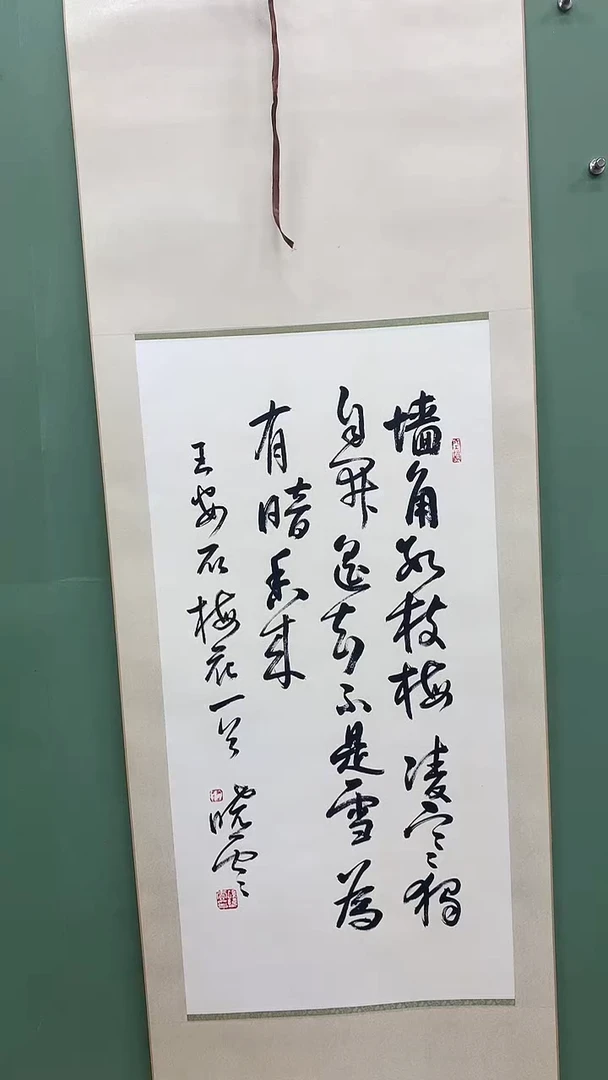 墙角数枝梅凌寒独
自開遥知不是雪為
有暗香来
王安石梅花一首
晓云